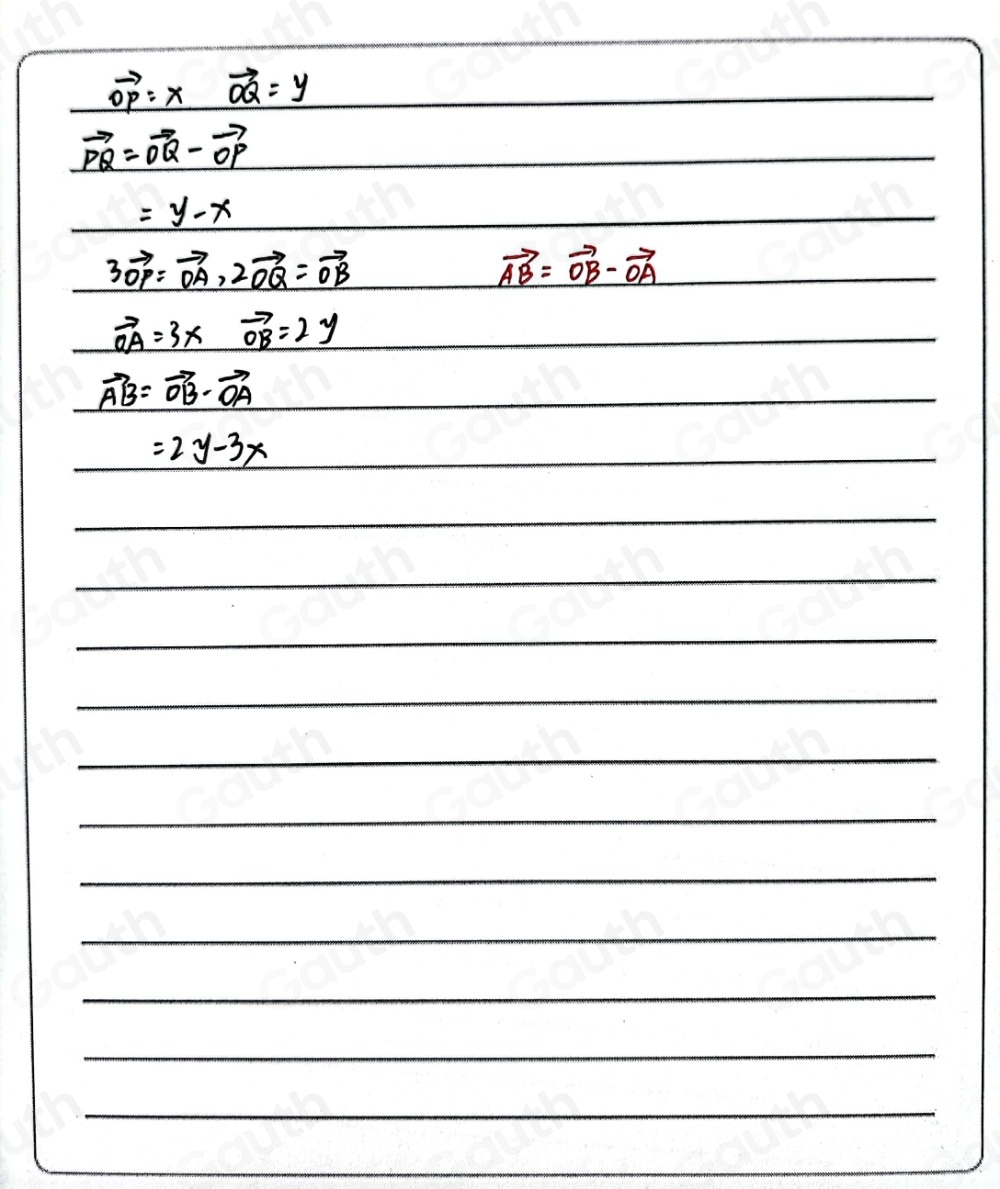 $\overrightarrow{OP} = x \quad \overrightarrow{OQ} = y$
$\overrightarrow{PQ} = \overrightarrow{OQ} - \overrightarrow{OP}$
$= y - x$
$3\overrightarrow{OP} = \overrightarrow{OA}, 2\overrightarrow{OQ} = \overrightarrow{OB}$
$\overrightarrow{AB} = \overrightarrow{OB} - \overrightarrow{OA}$
$\overrightarrow{OA} = 3x \quad \overrightarrow{OB} = 2y$
$\overrightarrow{AB} = \overrightarrow{OB} - \overrightarrow{OA}$
$= 2y - 3x$
Gauth